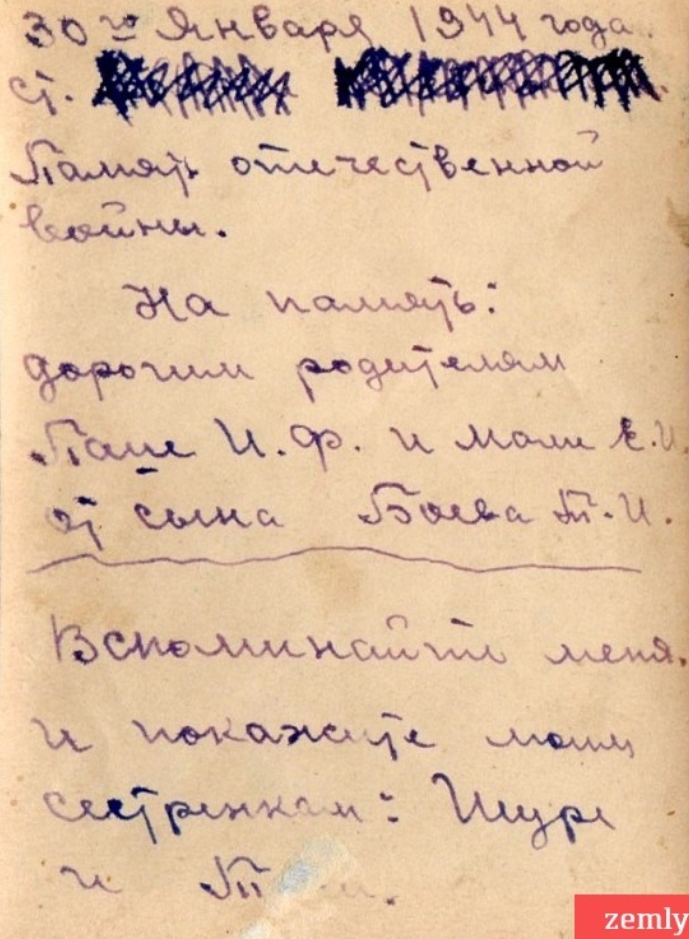 30го Января 1944 года.
ст.
Память отечественной
войны.
На память:
дорогим родителям
Папе И.Ф. и маме Е.И.
от сына Боева Т.И.
Вспоминайте меня.
и покажите моим
сестренкам: Шуре
и
zemly